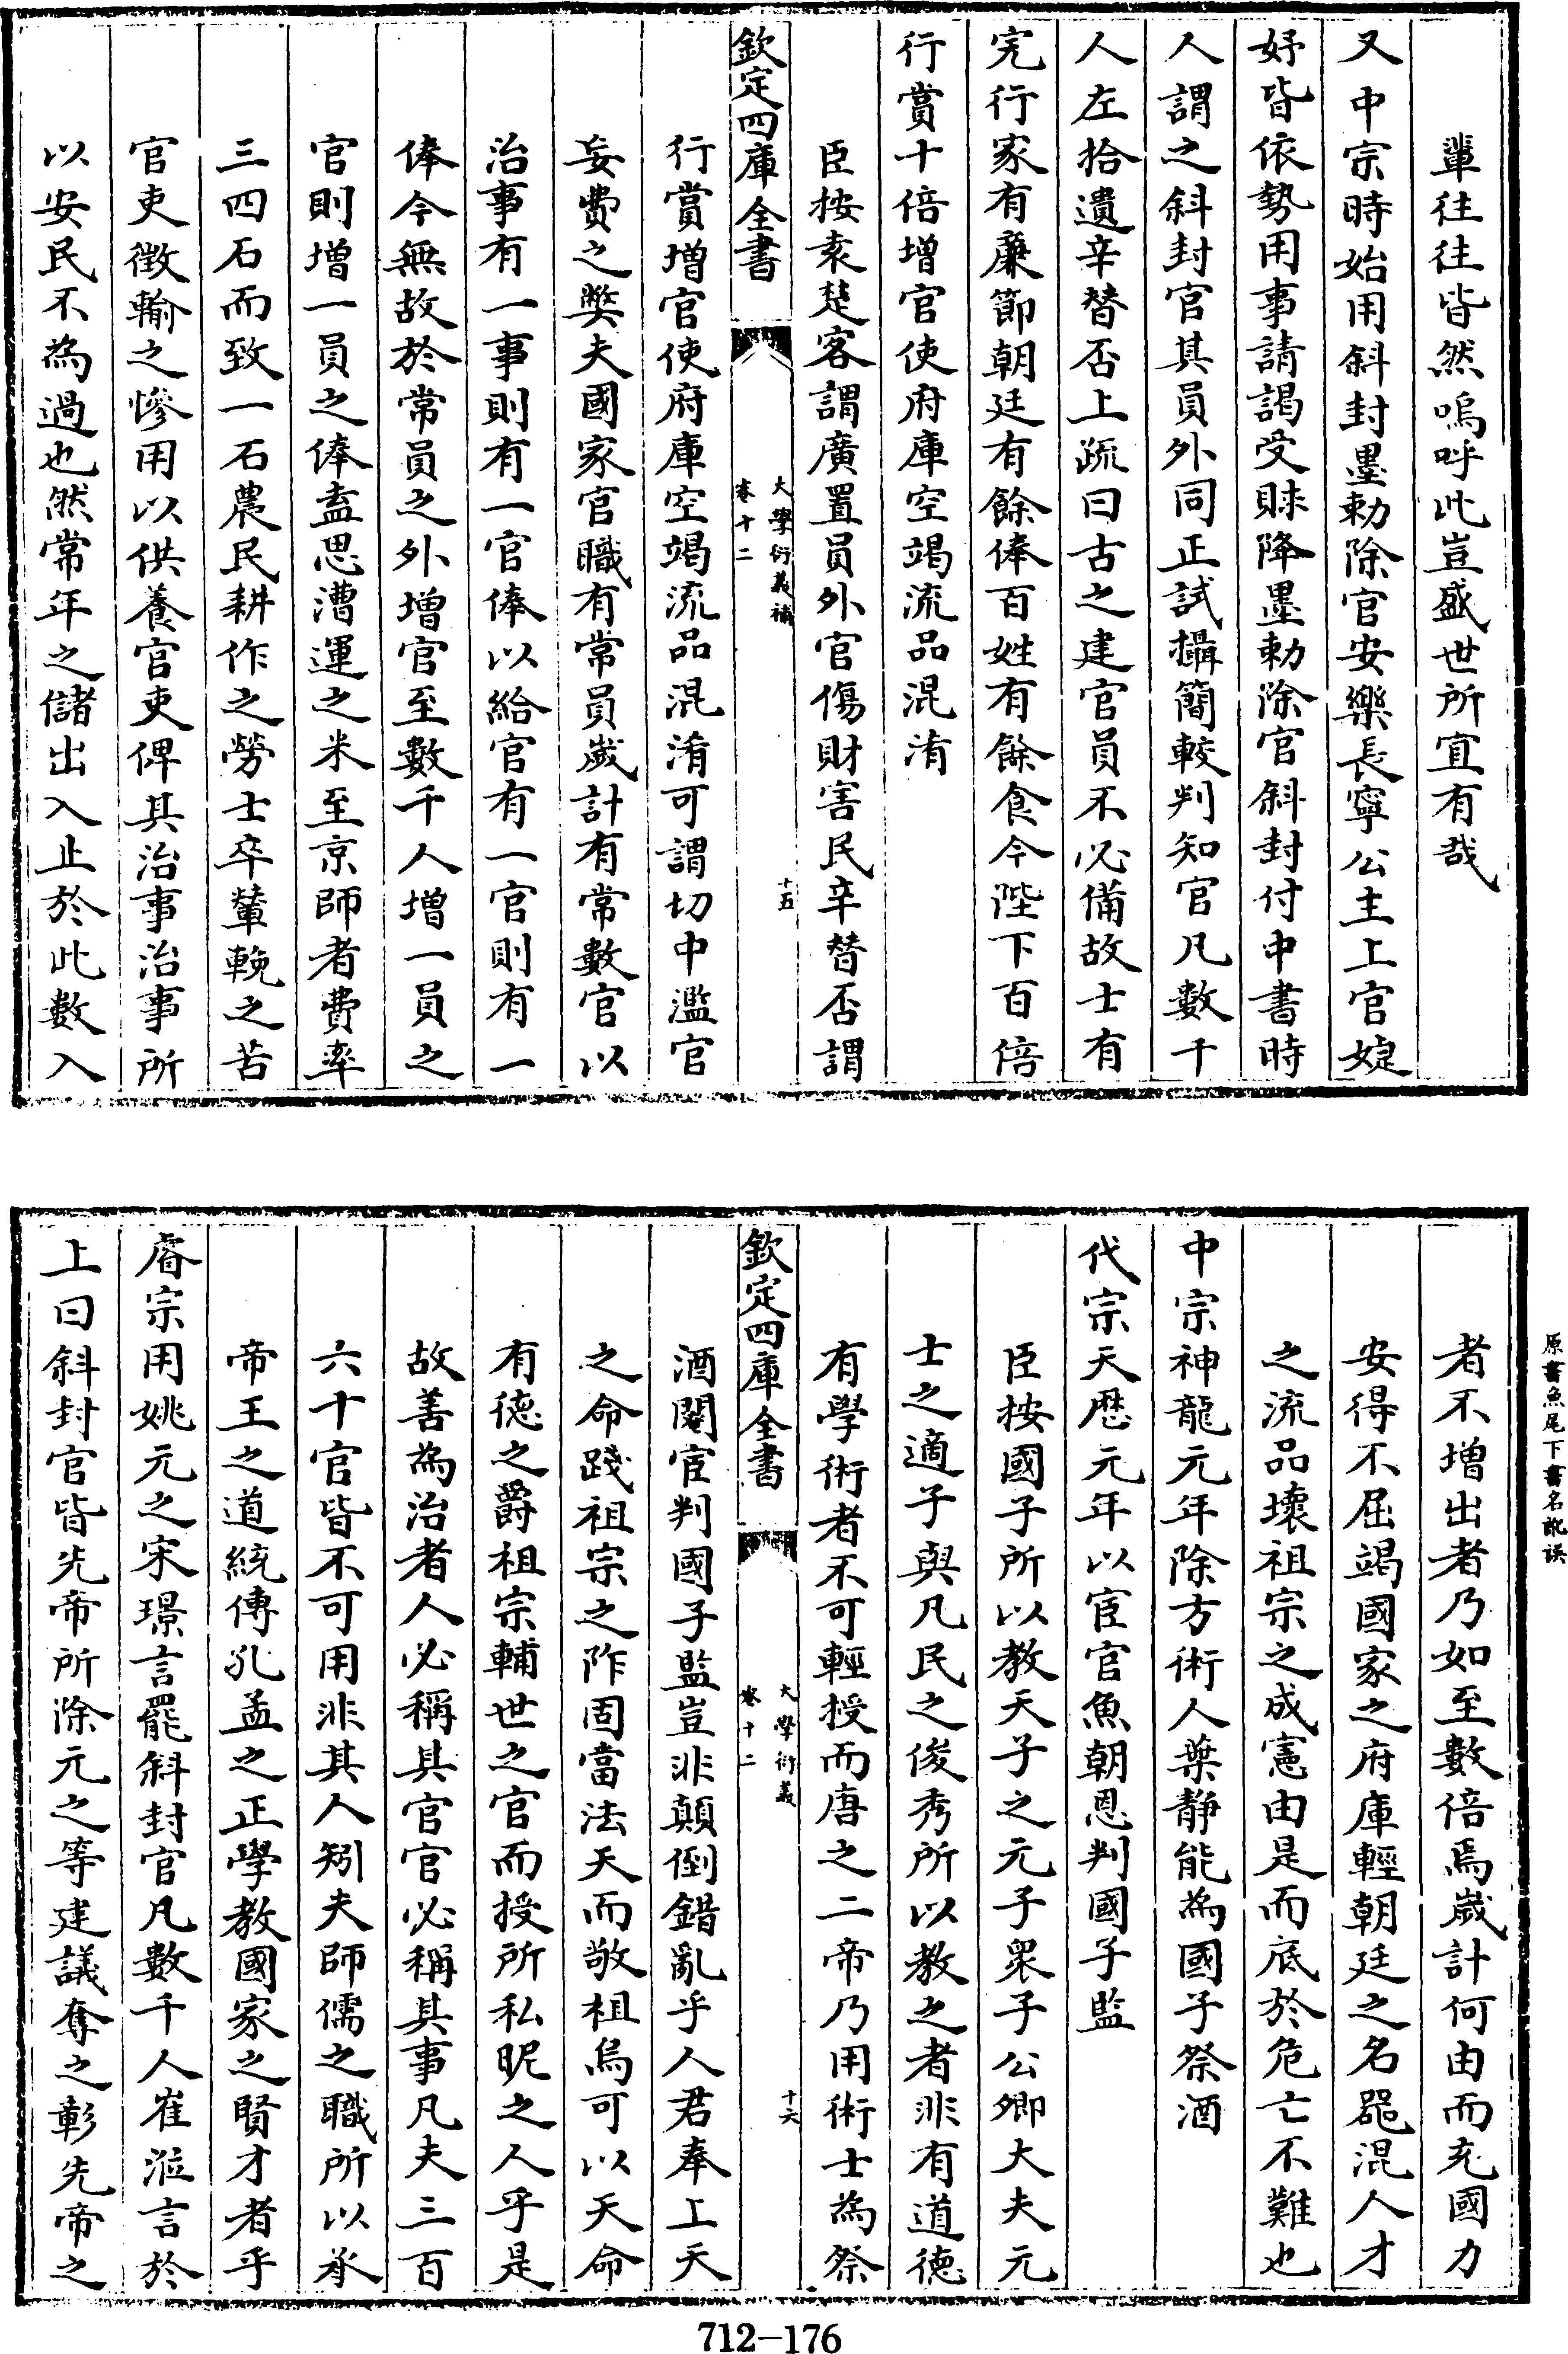 輩往往皆然嗚呼此豈盛世所宜有哉
又中宗時始用斜封墨勅除官安樂長寧公主上官婕
妤皆依勢用事請謁受賕降墨勅除官斜封付中書時
人謂之斜封官其員外同正試攝簡較判知官凡數千
人左拾遺辛替否上疏曰古之建官員不必備故士有
完行家有廉節朝廷有餘俸百姓有餘食今陛下百倍
行賞十倍增官使府庫空竭流品混淆
臣按袁楚客謂廣置員外官傷財害民辛替否謂
欽定四庫全書
大學衍義補
卷十二
十五
行賞增官使府庫空竭流品混淆可謂切中濫官
妄費之獘夫國家官職有常員嵗計有常數官以
治事有一事則有一官俸以給官有一官則有一
俸今無故於常員之外增官至數千人增一員之
官則增一員之俸盍思漕運之米至京師者費率
三四石而致一石農民耕作之勞士卒輦輓之苦
官吏徴輸之慘用以供養官吏俾其治事治事所
以安民不為過也然常年之儲出入止於此數入
者不增出者乃如至數倍焉嵗計何由而充國力
安得不屈竭國家之府庫輕朝廷之名噐混人才
之流品壊祖宗之成憲由是而底於危亡不難也
中宗神龍元年除方術人葉静能為國子祭酒
代宗天厯元年以宦官魚朝恩判國子監
臣按國子所以教天子之元子衆子公卿大夫元
士之適子與凡民之俊秀所以教之者非有道德
有學術者不可輕授而唐之二帝乃用術士為祭
欽定四庫全書
大學衍義
卷十二
十六
酒閹宦判國子監豈非顛倒錯亂乎人君奉上天
之命踐祖宗之阼固當法天而敬祖烏可以天命
有德之爵祖宗輔世之官而授所私昵之人乎是
故善為治者人必稱其官官必稱其事凡夫三百
六十官皆不可用非其人矧夫師儒之職所以承
帝王之道統傳孔孟之正學教國家之賢才者乎
睿宗用姚元之宋璟言罷斜封官凡數千人崔涖言於
上曰斜封官皆先帝所除元之等建議奪之彰先帝之
原書魚尾下書名訛誤
712-176